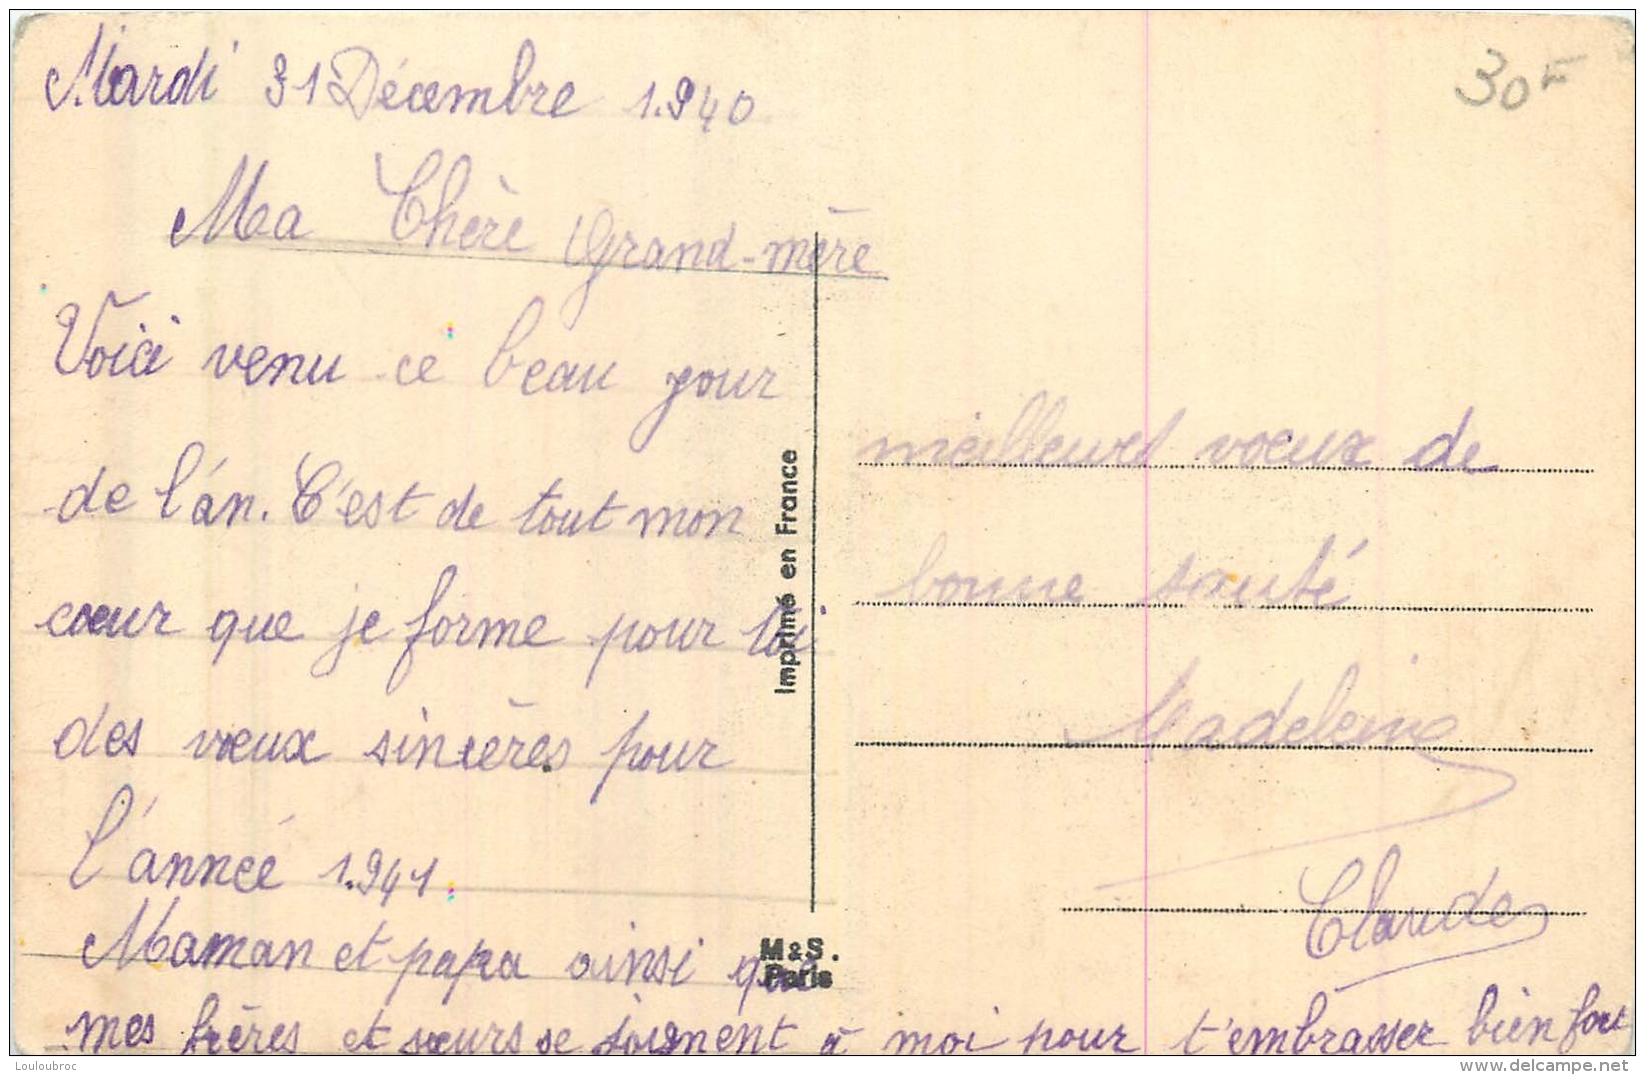 Mardi 31 Décembre 1.940
30F
Ma Chère Grand-mère
Voici venu ce beau jour
de l'án. C'est de tout mon
cœur que je forme pour toi
des vœux sincères pour
l'ánnée 1.941.
Maman et papa ainsi que
mes frères et sœurs se joignent à moi pour t'embrasser bien fort
Imprimé en France
M & S.
Paris
meilleurs vœux de
bonne santé
Madeleine
Claude
Louloubroc
delcampe.net